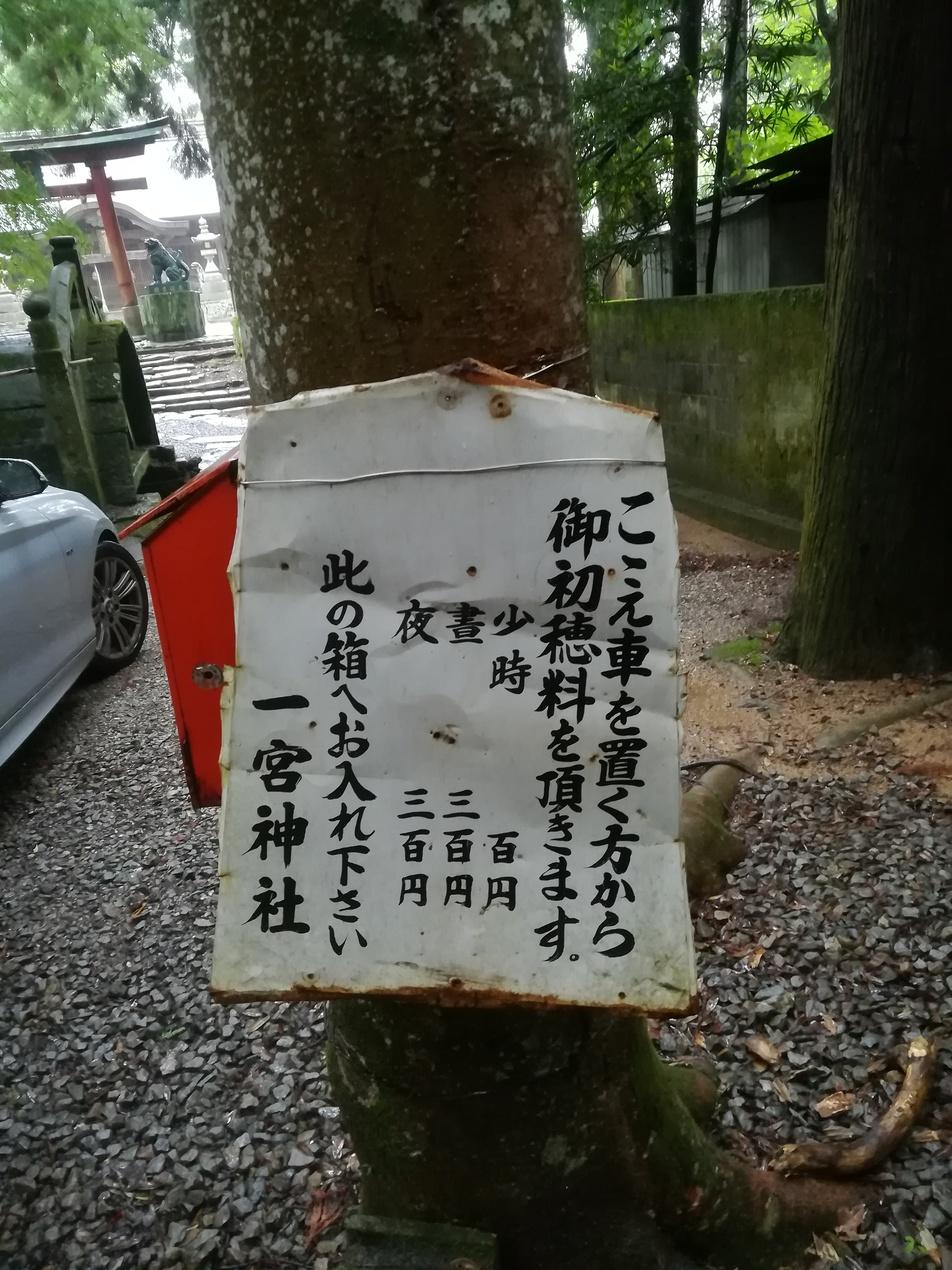 こゝえ車を置く方から
御初穂料を頂きます。
少時 百円
晝 三百円
夜 三百円
此の箱へお入れ下さい
一宮神社